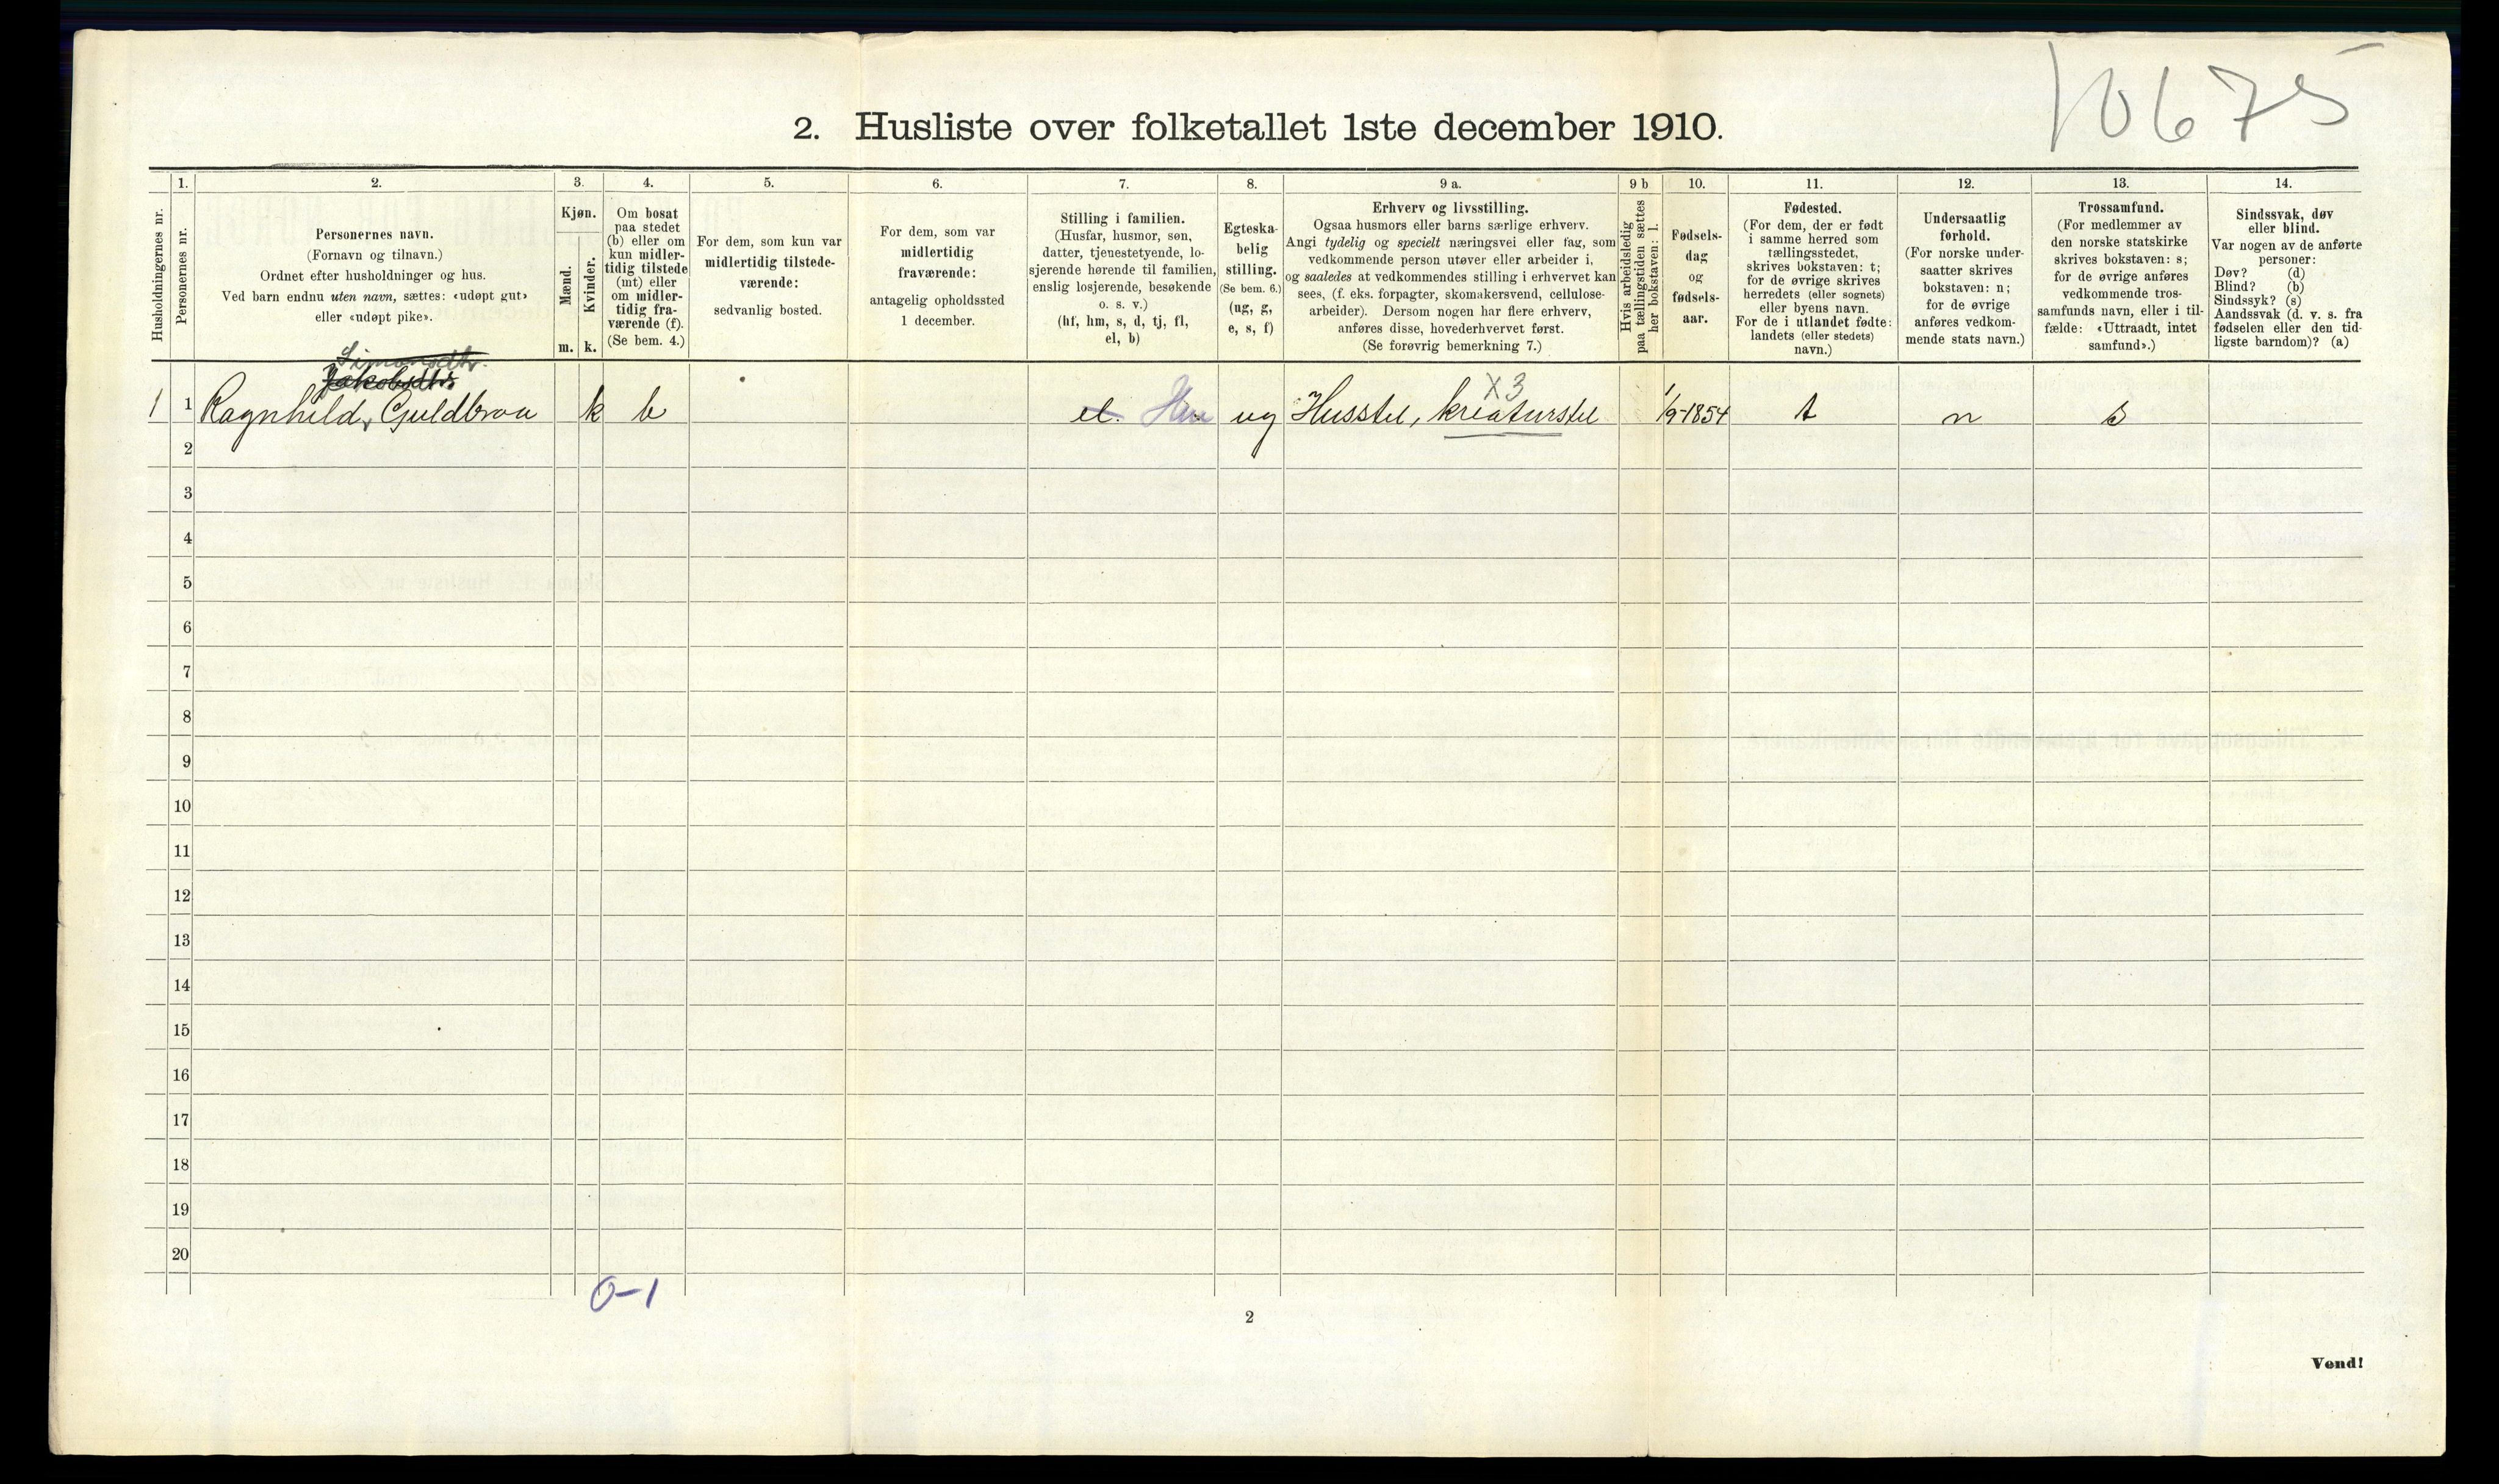 10675
2. Husliste over folketallet 1ste december 1910.
Husholdningernes nr.
1.
Personernes nr.
2.
Personernes navn.
(Fornavn og tilnavn.)
Ordnet efter husholdninger og hus.
Ved barn endnu uten navn, sættes: «udøpt gut»
eller «udøpt pike».
3.
Kjøn.
Mænd.
Kvinder.
m. k.
4.
Om bosat
paa stedet
(b) eller om
kun midler-
tidig tilstede
(mt) eller
om midler-
tidig fra-
værende (f).
(Se bem. 4.)
5.
For dem, som kun var
midlertidig tilstede-
værende:
sedvanlig bosted.
6.
For dem, som var
midlertidig
fraværende:
antagelig opholdssted
1 december.
7.
Stilling i familien.
(Husfar, husmor, søn,
datter, tjenestetyende, lo-
sjerende hørende til familien,
enslig losjerende, besøkende
o. s. v.)
(hf, hm, s, d, tj, fl,
el, b)
8.
Egteska-
belig
stilling.
(Se bem. 6.)
(ug, g,
e, s, f)
9 a.
Erhverv og livsstilling.
Ogsaa husmors eller barns særlige erhverv.
Angi tydelig og specielt næringsvei eller fag, som
vedkommende person utøver eller arbeider i,
og saaledes at vedkommendes stilling i erhvervet kan
sees, (f. eks. forpagter, skomakersvend, cellulose-
arbeider). Dersom nogen har flere erhverv,
anføres disse, hovederhvervet først.
(Se forøvrig bemerkning 7.)
9 b
Hvis arbeidsledig
paa tællingstiden sættes
her bokstaven: l.
10.
Fødsels-
dag
og
fødsels-
aar.
11.
Fødested.
(For dem, der er født
i samme herred som
tællingsstedet,
skrives bokstaven: t;
for de øvrige skrives
herredets (eller sognets)
eller byens navn.
For de i utlandet fødte:
landets (eller stedets)
navn.)
12.
Undersaatlig
forhold.
(For norske under-
saatter skrives
bokstaven: n;
for de øvrige
anføres vedkom-
mende stats navn.)
13.
Trossamfund.
(For medlemmer av
den norske statskirke
skrives bokstaven: s;
for de øvrige anføres
vedkommende tros-
samfunds navn, eller i til-
fælde: «Uttraadt, intet
samfund».)
14.
Sindssvak, døv
eller blind.
Var nogen av de anførte
personer:
Døv? (d)
Blind? (b)
Sindssyk? (s)
Aandssvak (d. v. s. fra
fødselen eller den tid-
ligste barndom)? (a)
Simonsdtr.
Jakobsdtr.
X3
1 1 Ragnhild Guldbraa k b el. ug Husstel, kreaturstel 1/9-1854 t n s
2
3
4
5
6
7
8
9
10
11
12
13
14
15
16
17
18
19
20
0-1
2
Vend!